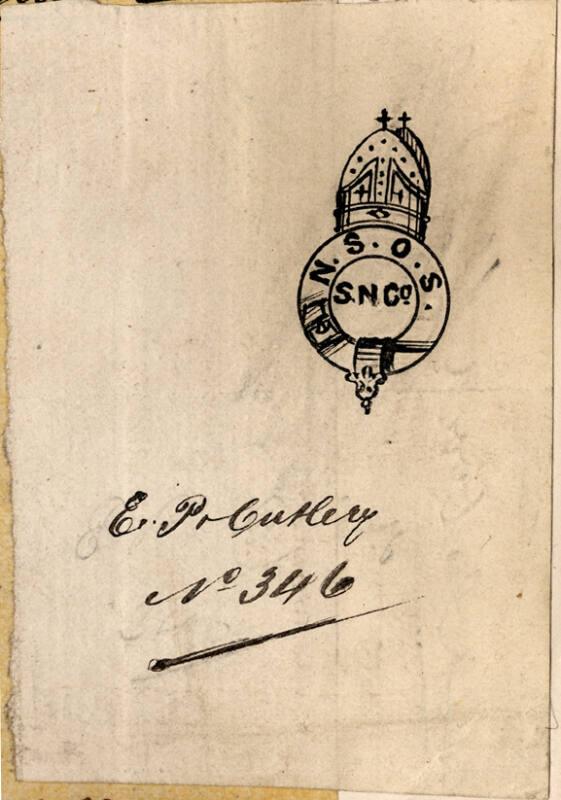 N. S. O. S.
S. N. Co
E. P. Cutlery
No 346